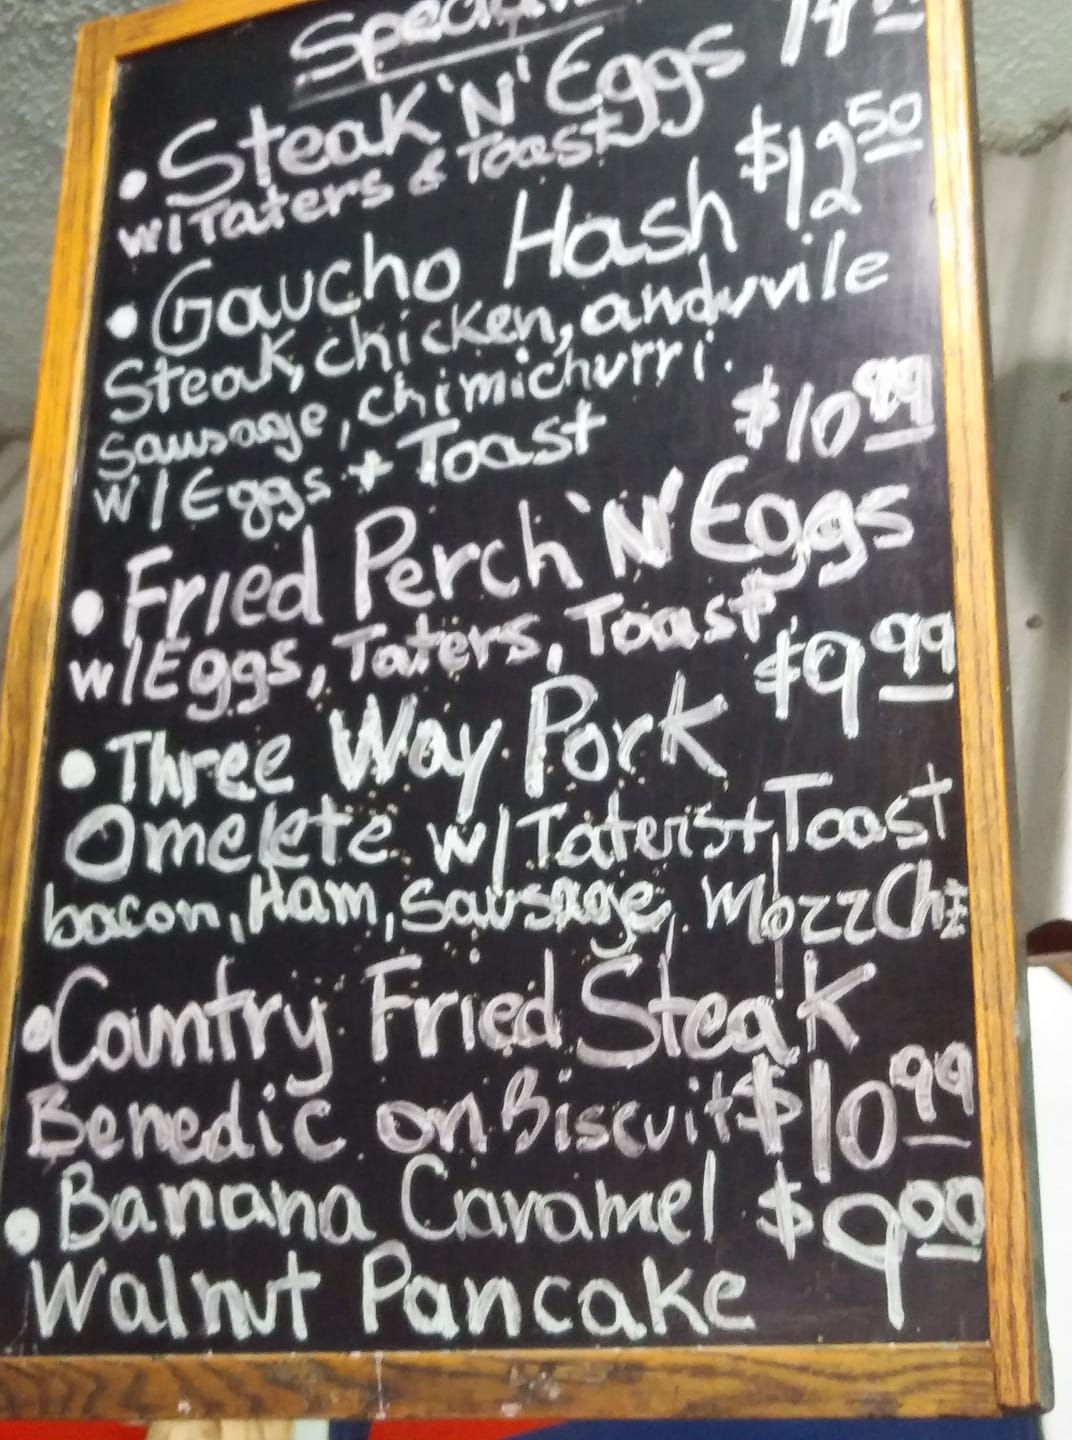 Specials
• Steak 'N' Eggs 14.00
w/Taters & Toast
• Gaucho Hash $12.50
Steak, chicken, anduvile
sausage, chimichurri.
w/Eggs + Toast
$10.99
• Fried Perch 'N' Eggs
w/Eggs, Taters, Toast
• Three Way Pork $9.99
Omelete w/Taters+Toast
bacon, Ham, Sausage, Mozz Chz
• Country Fried Steak
Benedic on Biscuit $10.99
• Banana Caramel $9.00
Walnut Pancake